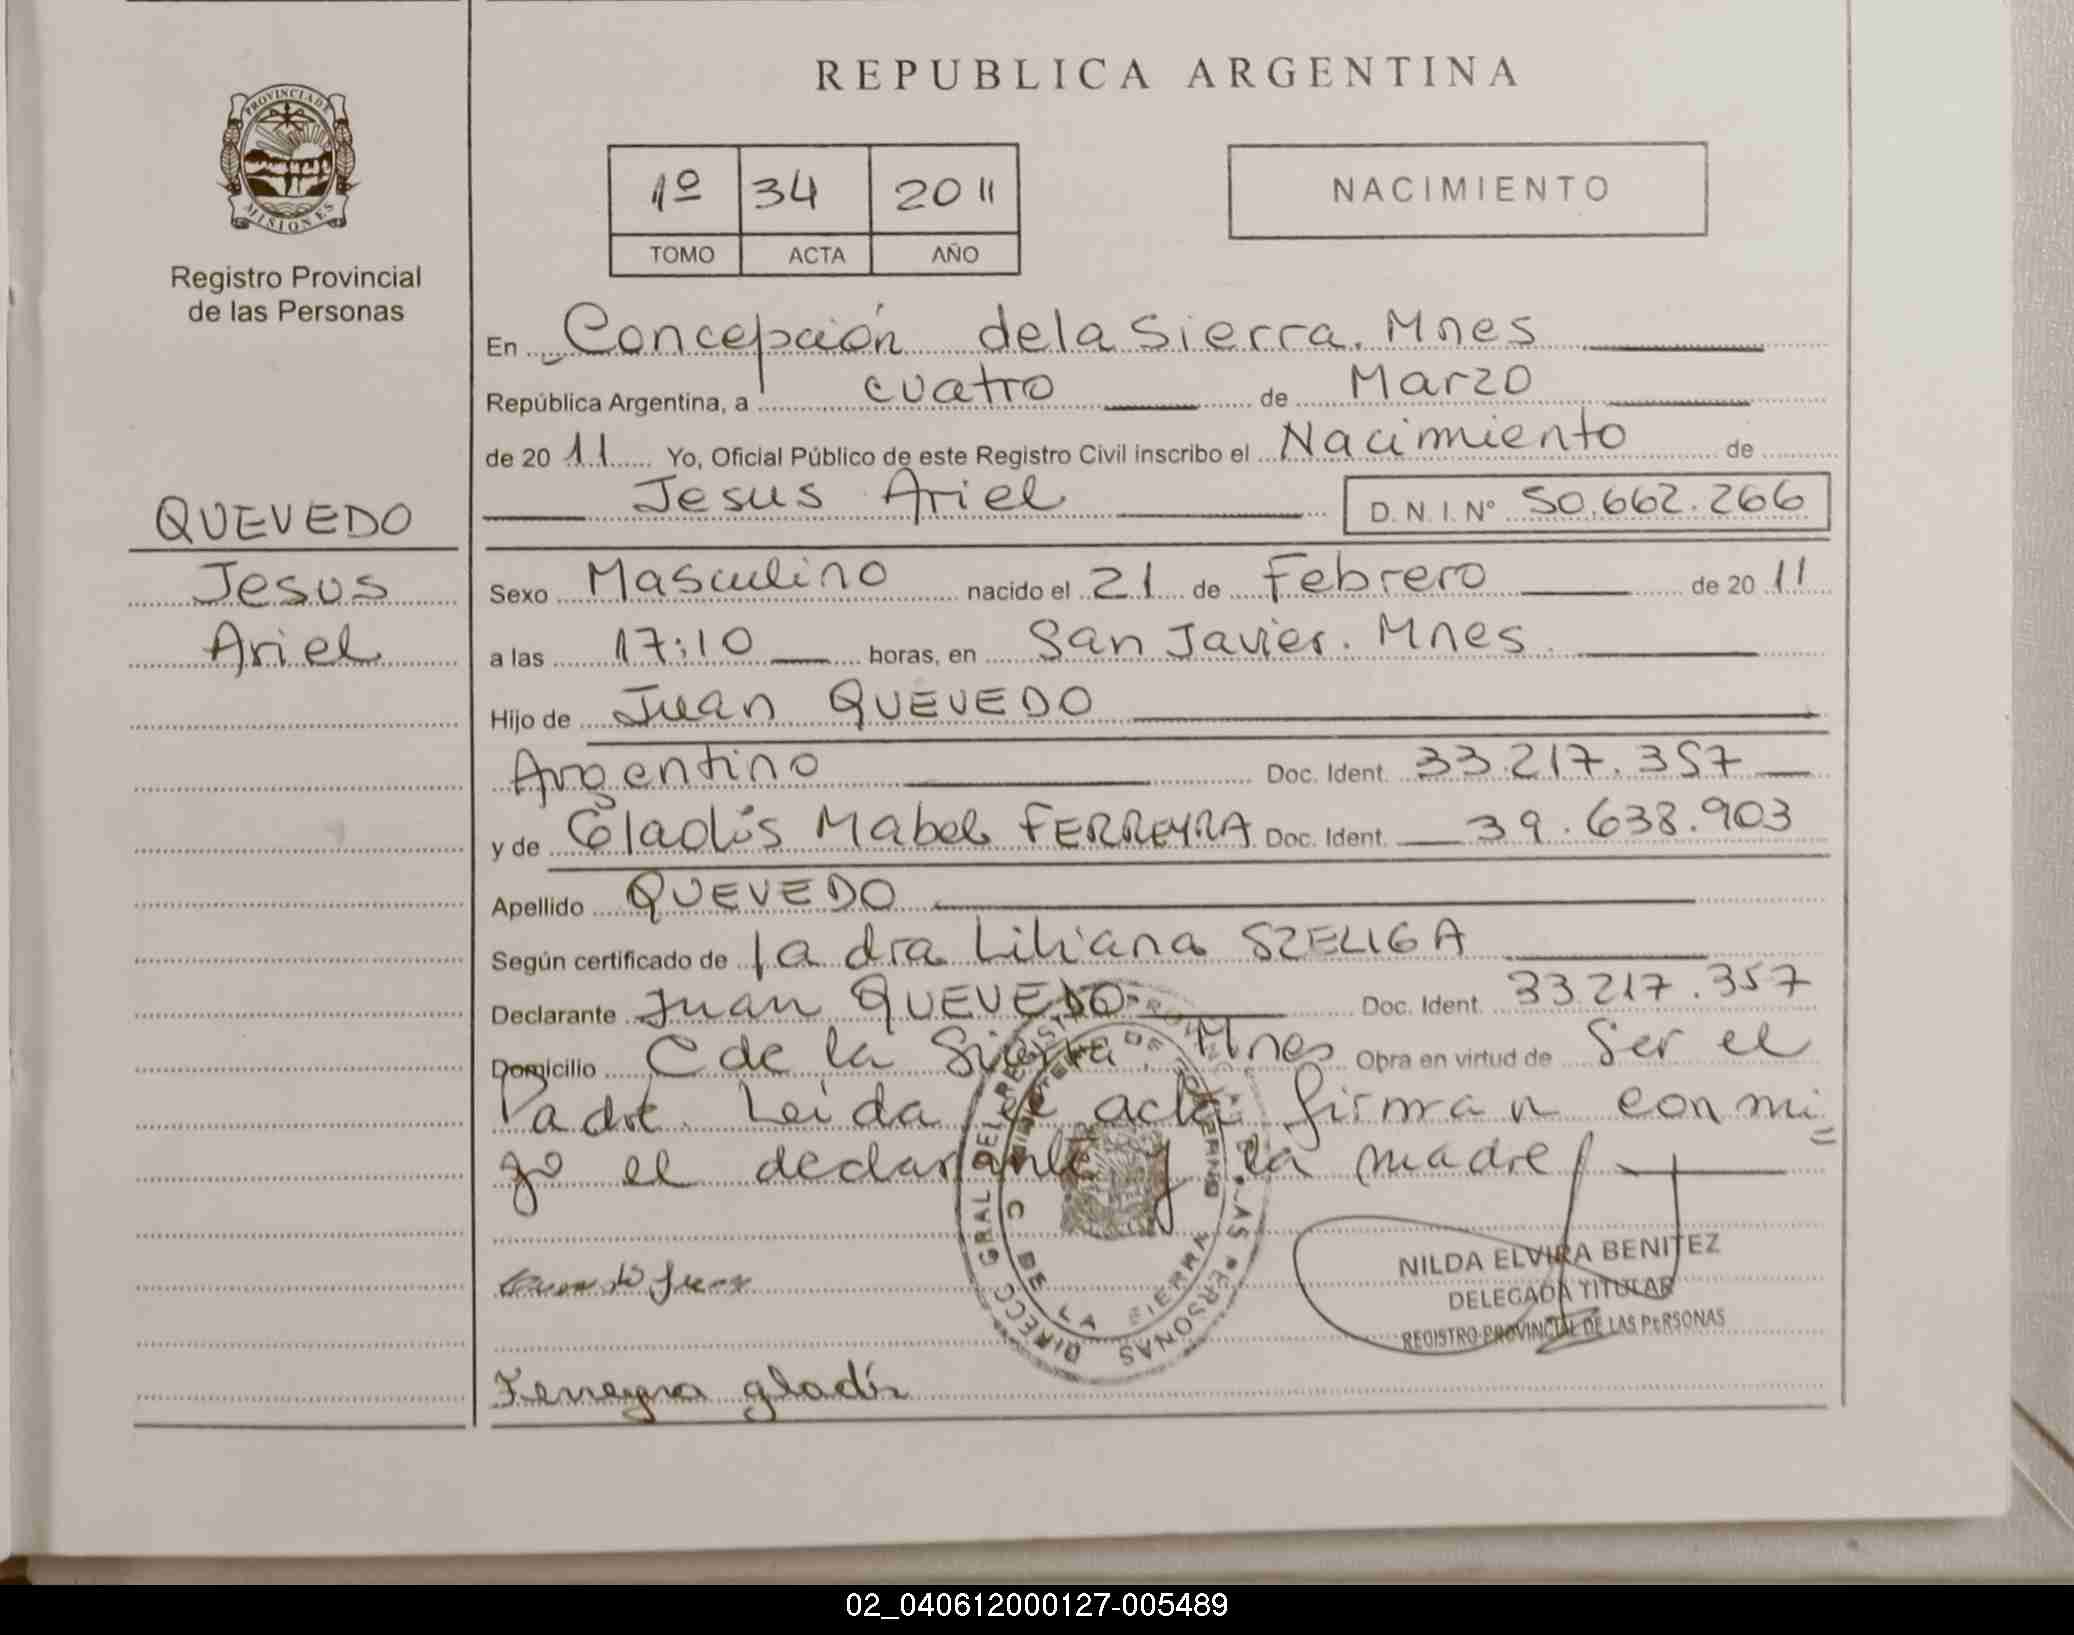 REPUBLICA ARGENTINA
PROVINCIA DE
MISIONES
Registro Provincial
de las Personas
1º 34 2011
TOMO ACTA AÑO
NACIMIENTO
En Concepción de la Sierra. Mnes
República Argentina, a cuatro de Marzo
de 20 11 Yo, Oficial Público de este Registro Civil inscribo el Nacimiento de
Jesus Ariel D.N.I.Nº 50.662.266
QUEVEDO
Jesus
Ariel
Sexo Masculino nacido el 21 de Febrero de 20 11
a las 17:10 horas, en San Javier. Mnes.
Hijo de Juan QUEVEDO
Argentino Doc. Ident. 33.217.357
y de Gladis Mabel FERREYRA Doc. Ident. 39.638.903
Apellido QUEVEDO
Según certificado de la dra Liliana SZELIGA
Declarante Juan QUEVEDO Doc. Ident. 33217.357
Domicilio C de la Sierra, Mnes Obra en virtud de Ser el
Padre. Leída el acta firman conmi=
go el declarante y la madre
NILDA ELVIRA BENITEZ
DELEGADA TITULAR
REGISTRO PROVINCIAL DE LAS PERSONAS
Ferreyra gladis
02_040612000127-005489